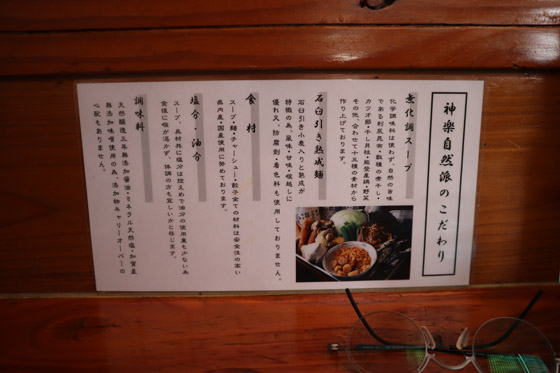 神楽自然派のこだわり
無化調スープ
化学調味料は使わず、自然の旨味
である利尻昆布・数種の煮干し・
カツオ節・干し貝柱・能登産鶏・野菜
その他、合わせて十三種の素材から
作り上げております。
石臼引き熟成麺
石臼引き小麦入りと熟成が
特徴の為、風味・甘味・喉越しに
優れ又、防腐剤・着色料も使用しておりません。
食材
スープ・麺・チャーシュー・餃子全ての材料は安全性の高い
県内産・国産使用に努めております。
塩分・油分
スープ、具材共に塩分は控えめで油分の使用量も少ない為
食後に喉が渇かず、体調の方も宜しいかと存じます。
調味料
天然醸造三年熟添加醤油・ミネラル天然塩・加賀産
無添加味噌使用の為、添加物キャリーオーバーの
心配もありません。